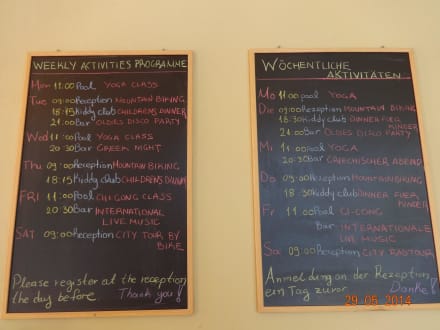 WEEKLY ACTIVITIES PROGRAMME
Mon 11:00 Pool YOGA CLASS
Tue 09:00 Reception MOUNTAIN BIKING
18:15 Kiddy club CHILDRENS DINNER
21.00 Bar OLDIES DISCO PARTY
Wed 11:00 Pool YOGA CLASS
20:30 Bar GREEK NIGHT
Thu 09:00 Reception MOUNTAIN BIKING
18:15 Kiddy club CHILDRENS DINNER
FRI 11:00 Pool CHI GONG CLASS
20:30 Bar INTERNATIONAL
LIVE MUSIC
SAT 09:00 Reception CITY TOUR BY
BIKE
Please register at the reception
the day before. Thank you!
WÖCHENTLICHE
AKTIVITÄTEN
Mo 11:00 pool YOGA
Die 09:00 Rezeption MOUNTAIN BIKING
18:30 Kiddy club DINNER FUER
KINDER
21:00 Bar OLDIES DISCO PARTY
Mi 11:00 Pool YOGA
20:30 Bar GRIECHISCHER ABEND
Do 09:00 Rezeption MOUNTAIN BIKING
18:30 Kiddy club DINNER FUER
KINDER
Fr 11:00 Pool CI-CONG
Bar INTERNATIONALE
LIVE MUSIC
Sa 09:00 Rezeption CITY RADTOUR
Anmeldung an der Rezeption
ein Tag zuvor Danke!
29-05-2014